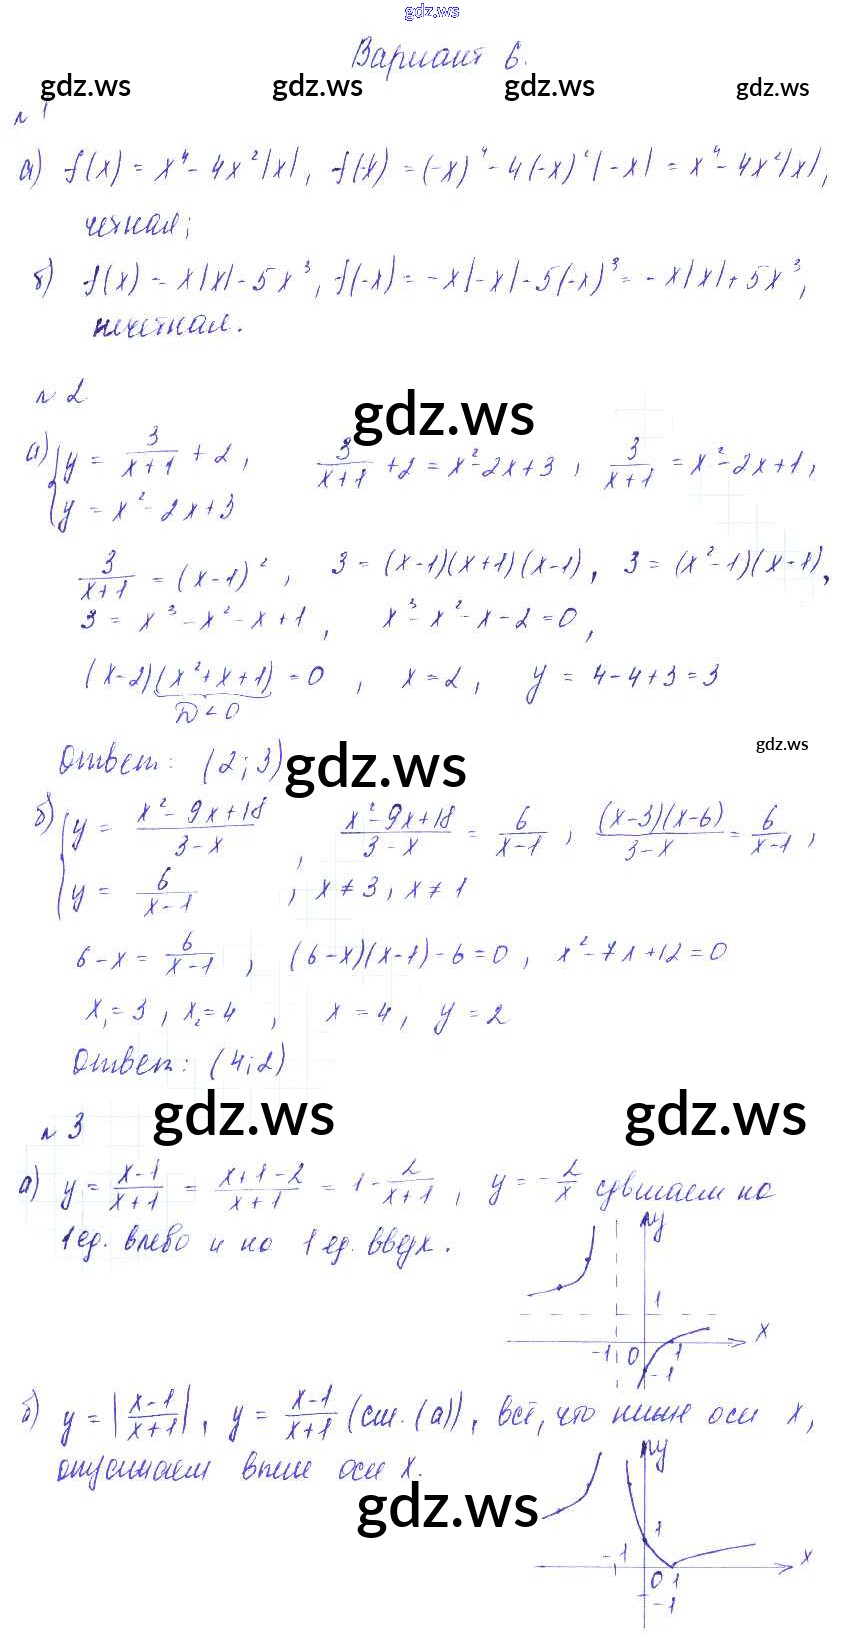 gdz.ws
Вариант 6.
gdz.ws gdz.ws gdz.ws gdz.ws
№ 1
а) f(x) = x⁴ - 4x²|x|, f(-x) = (-x)⁴ - 4(-x)²|-x| = x⁴ - 4x²|x|,
четная;
б) f(x) = x|x| - 5x³, f(-x) = -x|-x| - 5(-x)³ = -x|x| + 5x³,
нечетная.
№ 2
gdz.ws
а) { y = 3/(x+1) + 2, 3/(x+1) + 2 = x² - 2x + 3, 3/(x+1) = x² - 2x + 1,
y = x² - 2x + 3
3/(x+1) = (x-1)², 3 = (x-1)(x+1)(x-1), 3 = (x²-1)(x-1),
3 = x³ - x² - x + 1, x³ - x² - x - 2 = 0,
(x-2)(x² + x + 1) = 0, x = 2, y = 4 - 4 + 3 = 3
D < 0
Ответ: (2; 3)
gdz.ws gdz.ws
б) { y = (x² - 9x + 18)/(3-x), (x² - 9x + 18)/(3-x) = 6/(x-1), (x-3)(x-6)/(3-x) = 6/(x-1),
y = 6/(x-1), x ≠ 3, x ≠ 1
6 - x = 6/(x-1), (6-x)(x-1) - 6 = 0, x² - 7x + 12 = 0
x₁ = 3, x₂ = 4, x = 4, y = 2
Ответ: (4; 2)
gdz.ws gdz.ws
№ 3
а) y = (x-1)/(x+1) = (x+1-2)/(x+1) = 1 - 2/(x+1), y = -2/x сдвигаем на
1 ед. влево и на 1 ед. вверх.
y
1
x
-1 0 1
-1
б) y = |(x-1)/(x+1)|, y = (x-1)/(x+1) (см. (а)), всё, что ниже оси x,
выше оси x.
gdz.ws
y
1
-1 x
0 1
-1